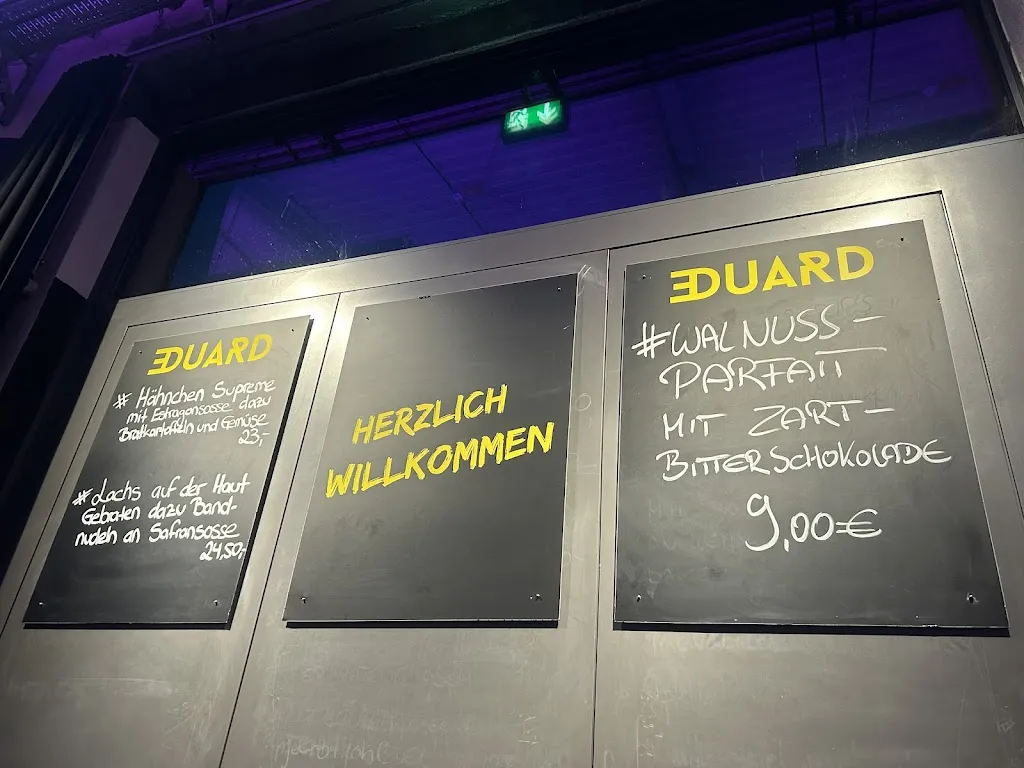 EDUARD
# Hähnchen Supreme
mit Estragonsosse dazu
Bratkartoffeln und Gemüse
23,-
# Lachs auf der Haut
Gebraten dazu Band-
nudeln an Safransosse
24,50,-
HERZLICH
WILLKOMMEN
EDUARD
#WALNUSS-
PARFAIT
MIT ZART-
BITTERSCHOKOLADE
9,00€